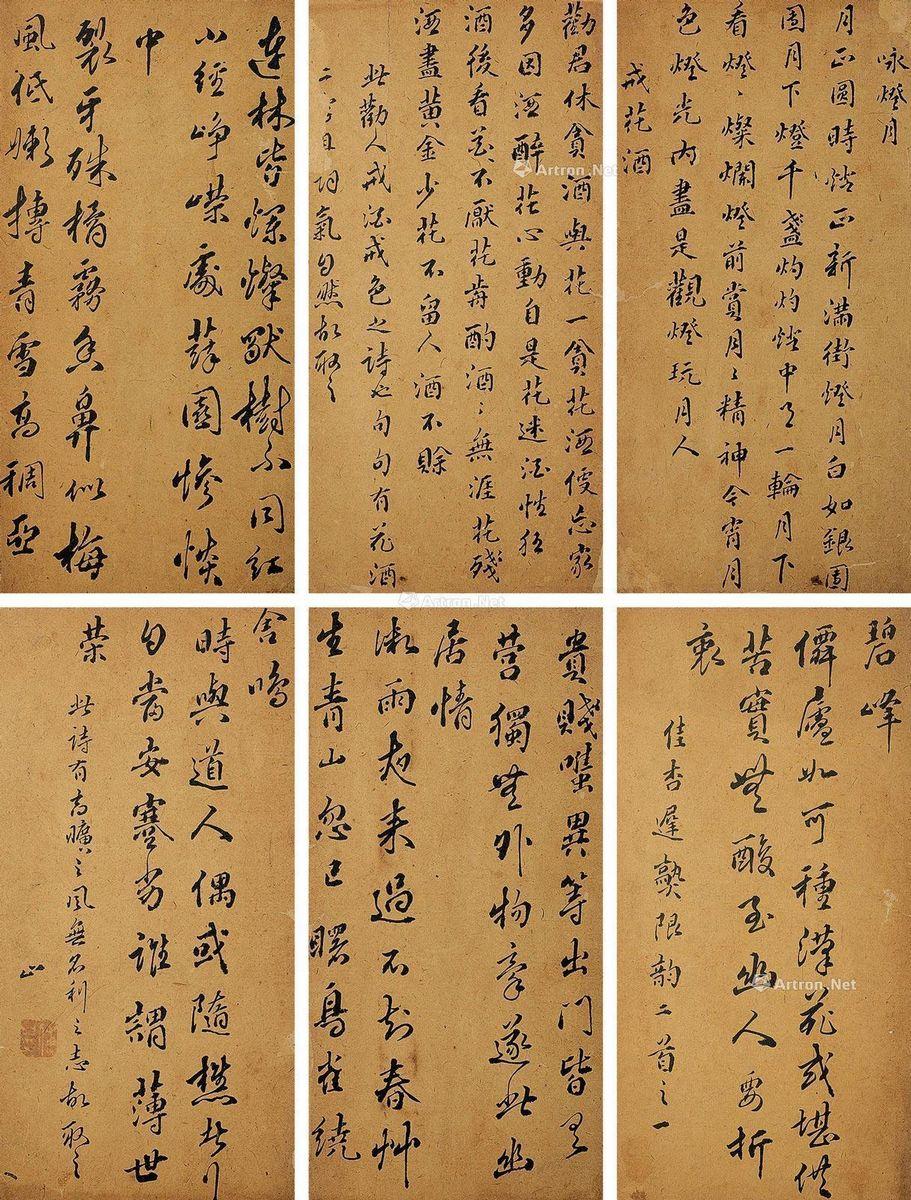 咏燈月
月正圓時燈正新滿街燈月白如銀團
團月下燈千盞灼灼燈中月一輪月下
看燈〻燦爛燈前賞月〻精神今宵月
色燈光内盡是觀燈玩月人
戒花酒
勸君休貪酒與花一貪花酒便忘家
多因酒醉花心動自是花迷酒性狂
酒後看花〻不厭花前酌酒〻無涯花殘
酒盡黄金少花不留人酒不賒
此勸人戒酒戒色之詩也句句有花酒
二字且詞氣自然故取之
連林皆爛燦獸樹不同紅
小徑崢嶸處園慘淡
中
裂牙殊橘霧鼻似梅
風低嫩摶青雪高稠亞
碧峰
僻廬如可種漢苑或堪供
苦實無酸至幽人要折
衷
佳杏遲熟限韵二首之一
貴賤雖異等出門皆有
營獨無外物牽遂此幽
居情
微雨夜来過不知春艸
生青山忽已曙鳥雀繞
舍鳴
時與道人偶或隨樵者行
自當安蹇劣誰謂薄世
榮
此詩有高曠之風無名利之志故取之
Artron.Net
Artron.Net
Artron.Net
Artron.Net
Artron.Net